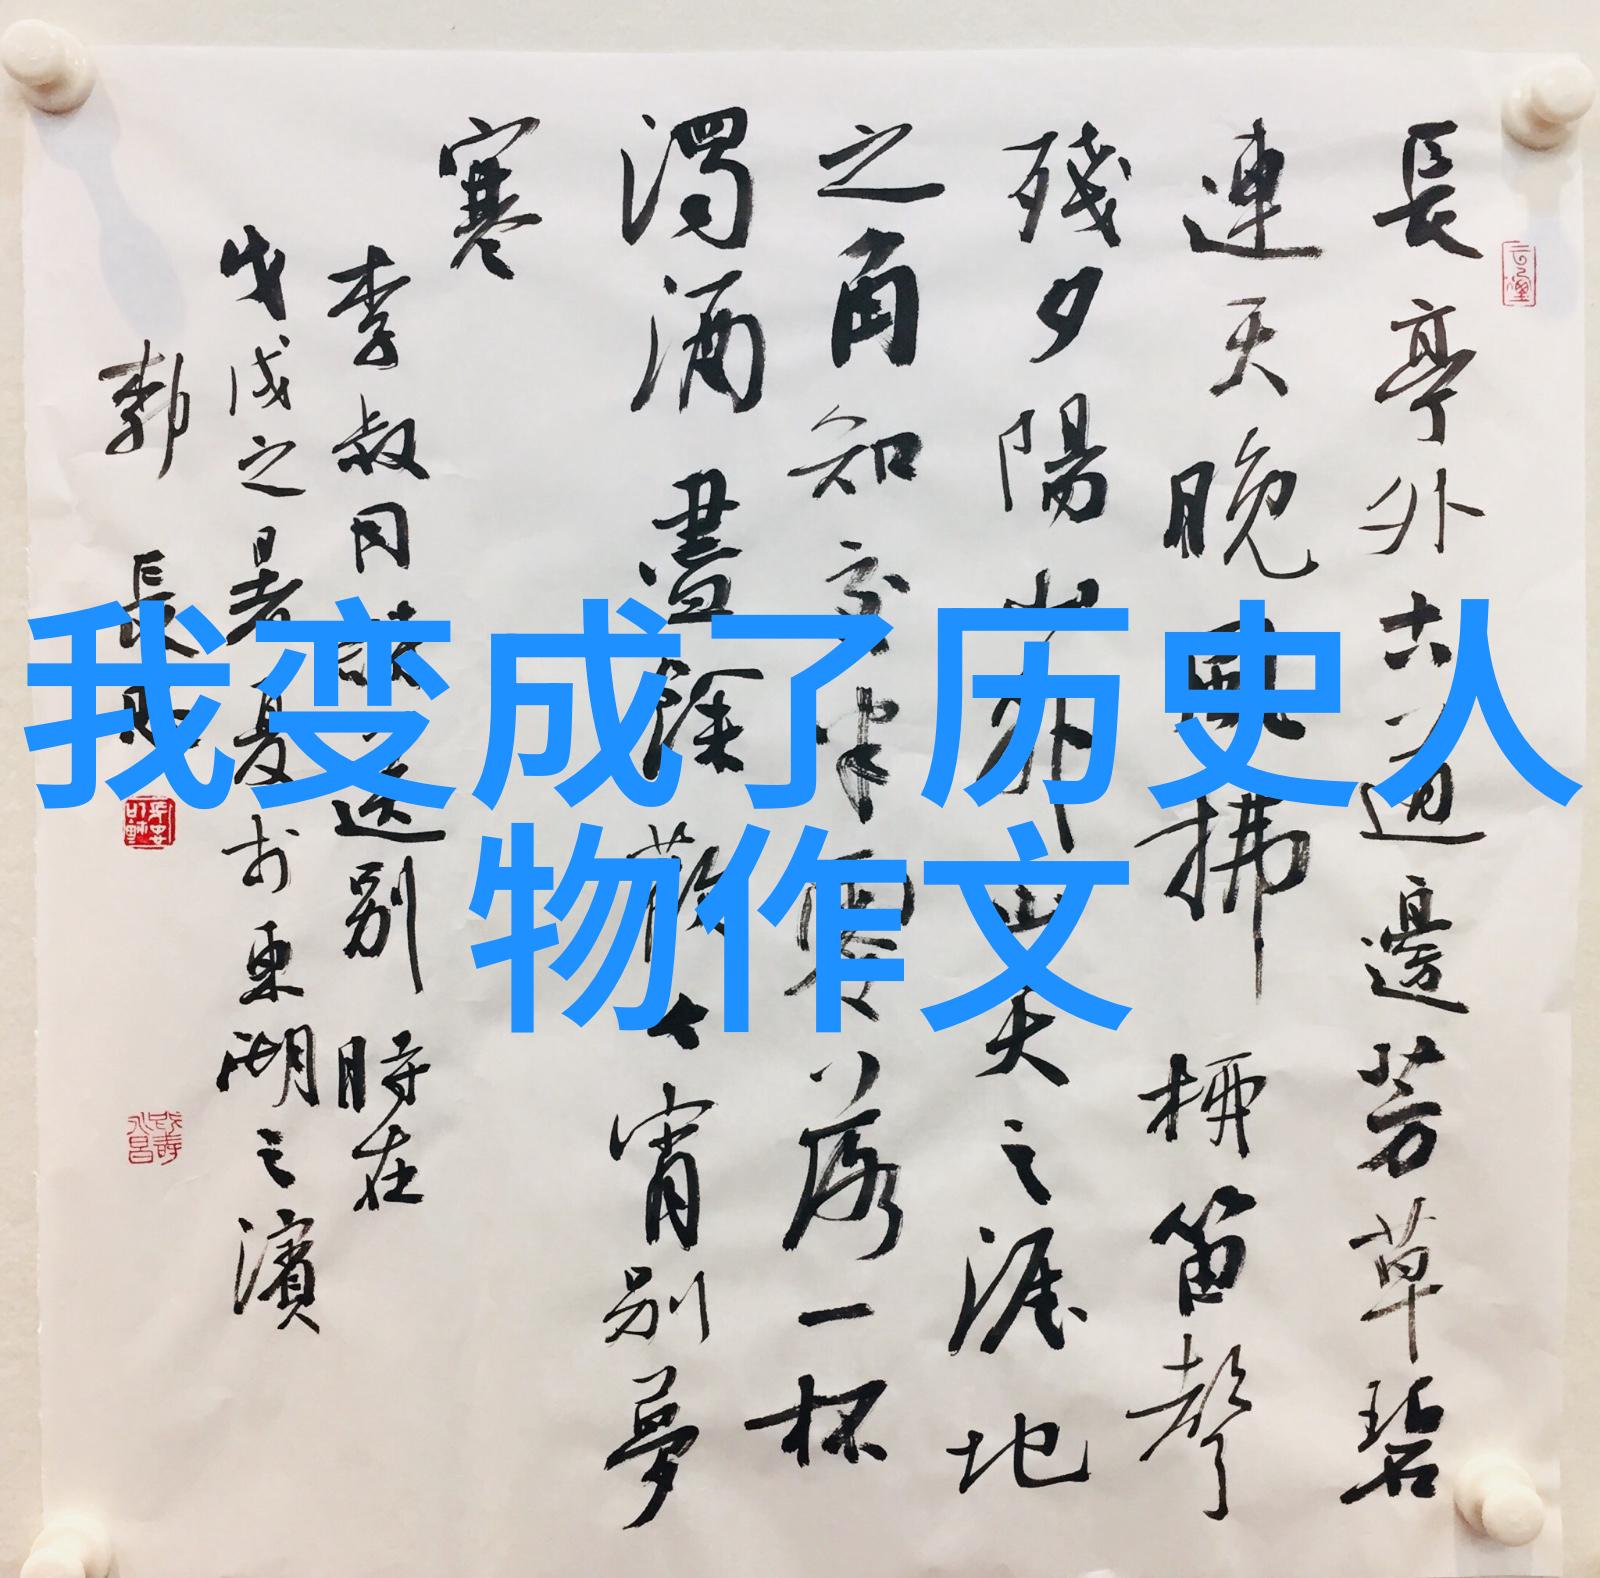 我变成了历史人
物作文
長亭外古道邊芳草碧
連天晚風拂柳笛聲
殘夕陽山外山天之涯地
之角知交半零落一杯
濁酒盡餘歡今宵別夢
寒
李叔同 送別 時在
戊戌之暑夏於東湖之濱
長